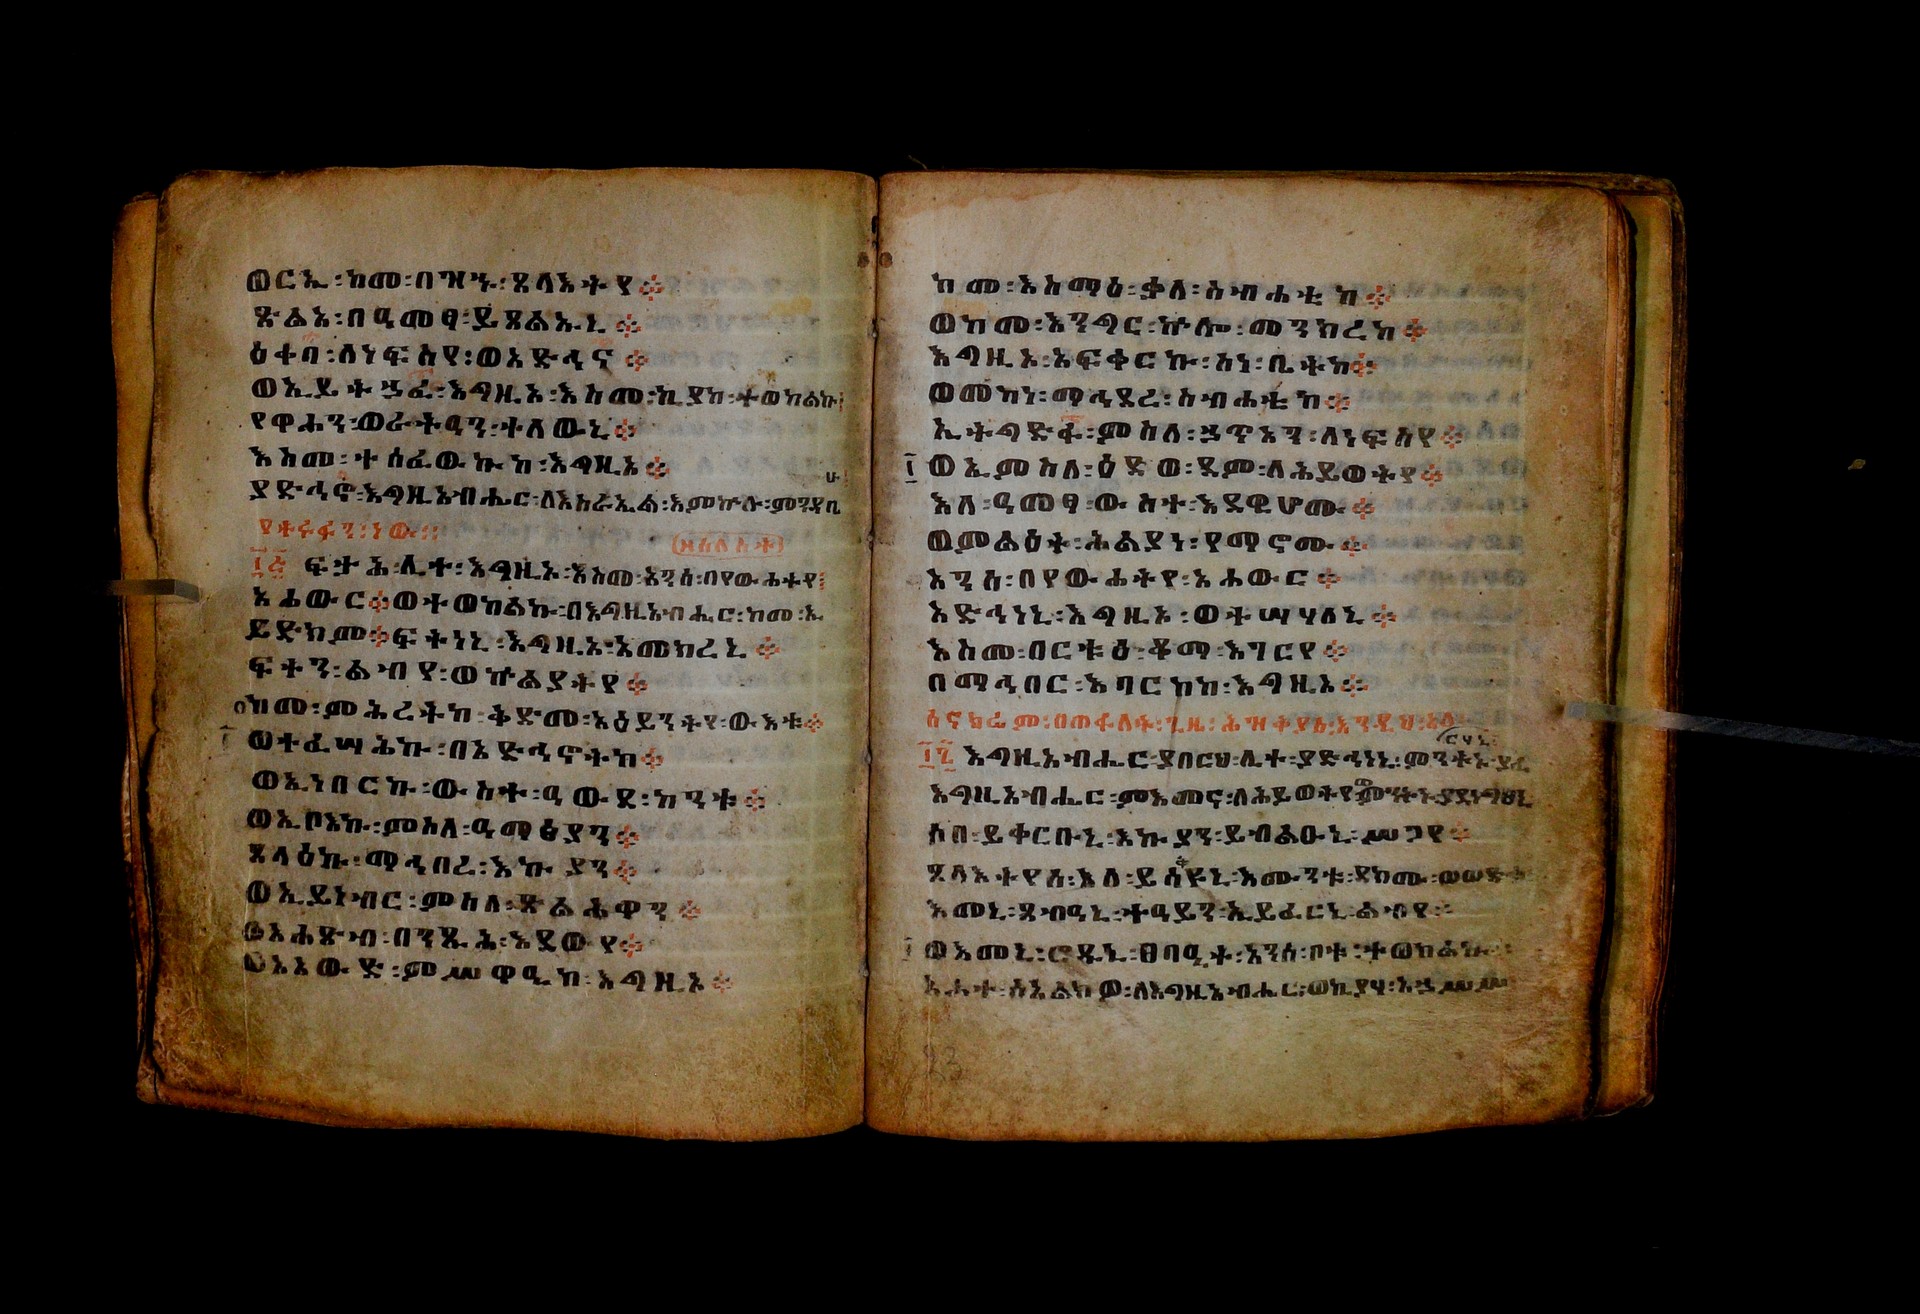 ወርኢ፡ከመ፡በዝኁ፡ጸላእትየ፨
ጽልአ፡በዓመፃ፡ይጸልኡኒ፨
ዕቀባ፡ለነፍስየ፡ወአድኅና፨
ወኢይትኃፈ፡እግዚኦ፡እስመ፡ኪያከ፡ተወከልኩ፡
የዋሐን፡ወራትዓን፡ተለውኒ፨
እስመ፡ተሰፈውኩከ፡እግዚኦ፨
ያድኅኖ፡እግዚአብሔር፡ለእስራኤል፡እምኵሉ፡ምንዳቤ
የተሩፋን፡ነው።
ፍታሕ፡ሊተ፡እግዚኦ፡እስመ፡አንሰ፡በየውሐትየ፡
አሖውር፨ወተወከልኩ፡በእግዚአብሔር፡ከመ፡ኢ
ይድክም፨ፍትነኒ፡እግዚኦ፡አመክረኒ፨
ፍተን፡ልብየ፡ወኵልያትየ፨
ከመ፡ምሕረትከ፡ቅድመ፡አዕይንትየ፡ውእቱ፨
ወተፈሣሕኩ፡በአድኅኖትከ፨
ወኢነበርኩ፡ውስተ፡ዓውደ፡ከንቱ፨
ወኢቦእኩ፡ምስለ፡ዓማፅያን፨
ጸላዕኩ፡ማኅበረ፡እኩያን፨
ወኢይነብር፡ምስለ፡ጽልሕዋን፨
ወአሐጽብ፡በንጹሕ፡እደውየ፨
ወአአውድ፡ምሥዋዒከ፡እግዚኦ፨
ከመ፡እስማዕ፡ቃለ፡ስብሐቲከ፨
ወከመ፡እንግር፡ኵሎ፡መንክረከ፨
እግዚኦ፡አፍቀርኩ፡ስነ፡ቤትከ፨
ወመከነ፡ማኅደረ፡ስብሐቲከ፨
ኢትግድፋ፡ምስለ፡ኃጥአን፡ለነፍስየ፨
ወኢምስለ፡ዕድወ፡ደም፡ለሕይወትየ፨
እለ፡ዓመፃ፡ውስተ፡እደዊሆሙ፨
ወምልዕት፡ሕልያነ፡የማኖሙ፨
አንሰ፡በየውሐትየ፡አሐውር፨
አድኅነኒ፡እግዚኦ፡ወተሣሃለኒ፨
እስመ፡በርቱዕ፡ቆማ፡እግርየ፨
በማኅበር፡እባርከከ፡እግዚኦ፨
እግዚአብሔር፡ያበርህ፡ሊተ፡ያድኅነኒ፡ምንትኑ
እግዚአብሔር፡ምእመና፡ለሕይወትየ
ሶበ፡ይቀርቡኒ፡እኩያን፡ይብልዑኒ፡ሥጋየ፨
ጸላእትየሰ፡እለ፡ይሳቅዩኒ፡እሙንቱ፡ደክሙ፡ወወድቁ
እመኒ፡ጸብዓኒ፡ተዓይን፡ኢይፈርኒ፡ልብየ፨
ወእመኒ፡ሮዱኒ፡ፀባዒት፡አንሰ፡ቦቱ፡ተወከልኩ
አሐተ፡ሰአልክዎ፡ለእግዚአብሔር፡ወኪያሃ፡አኃሥሥ